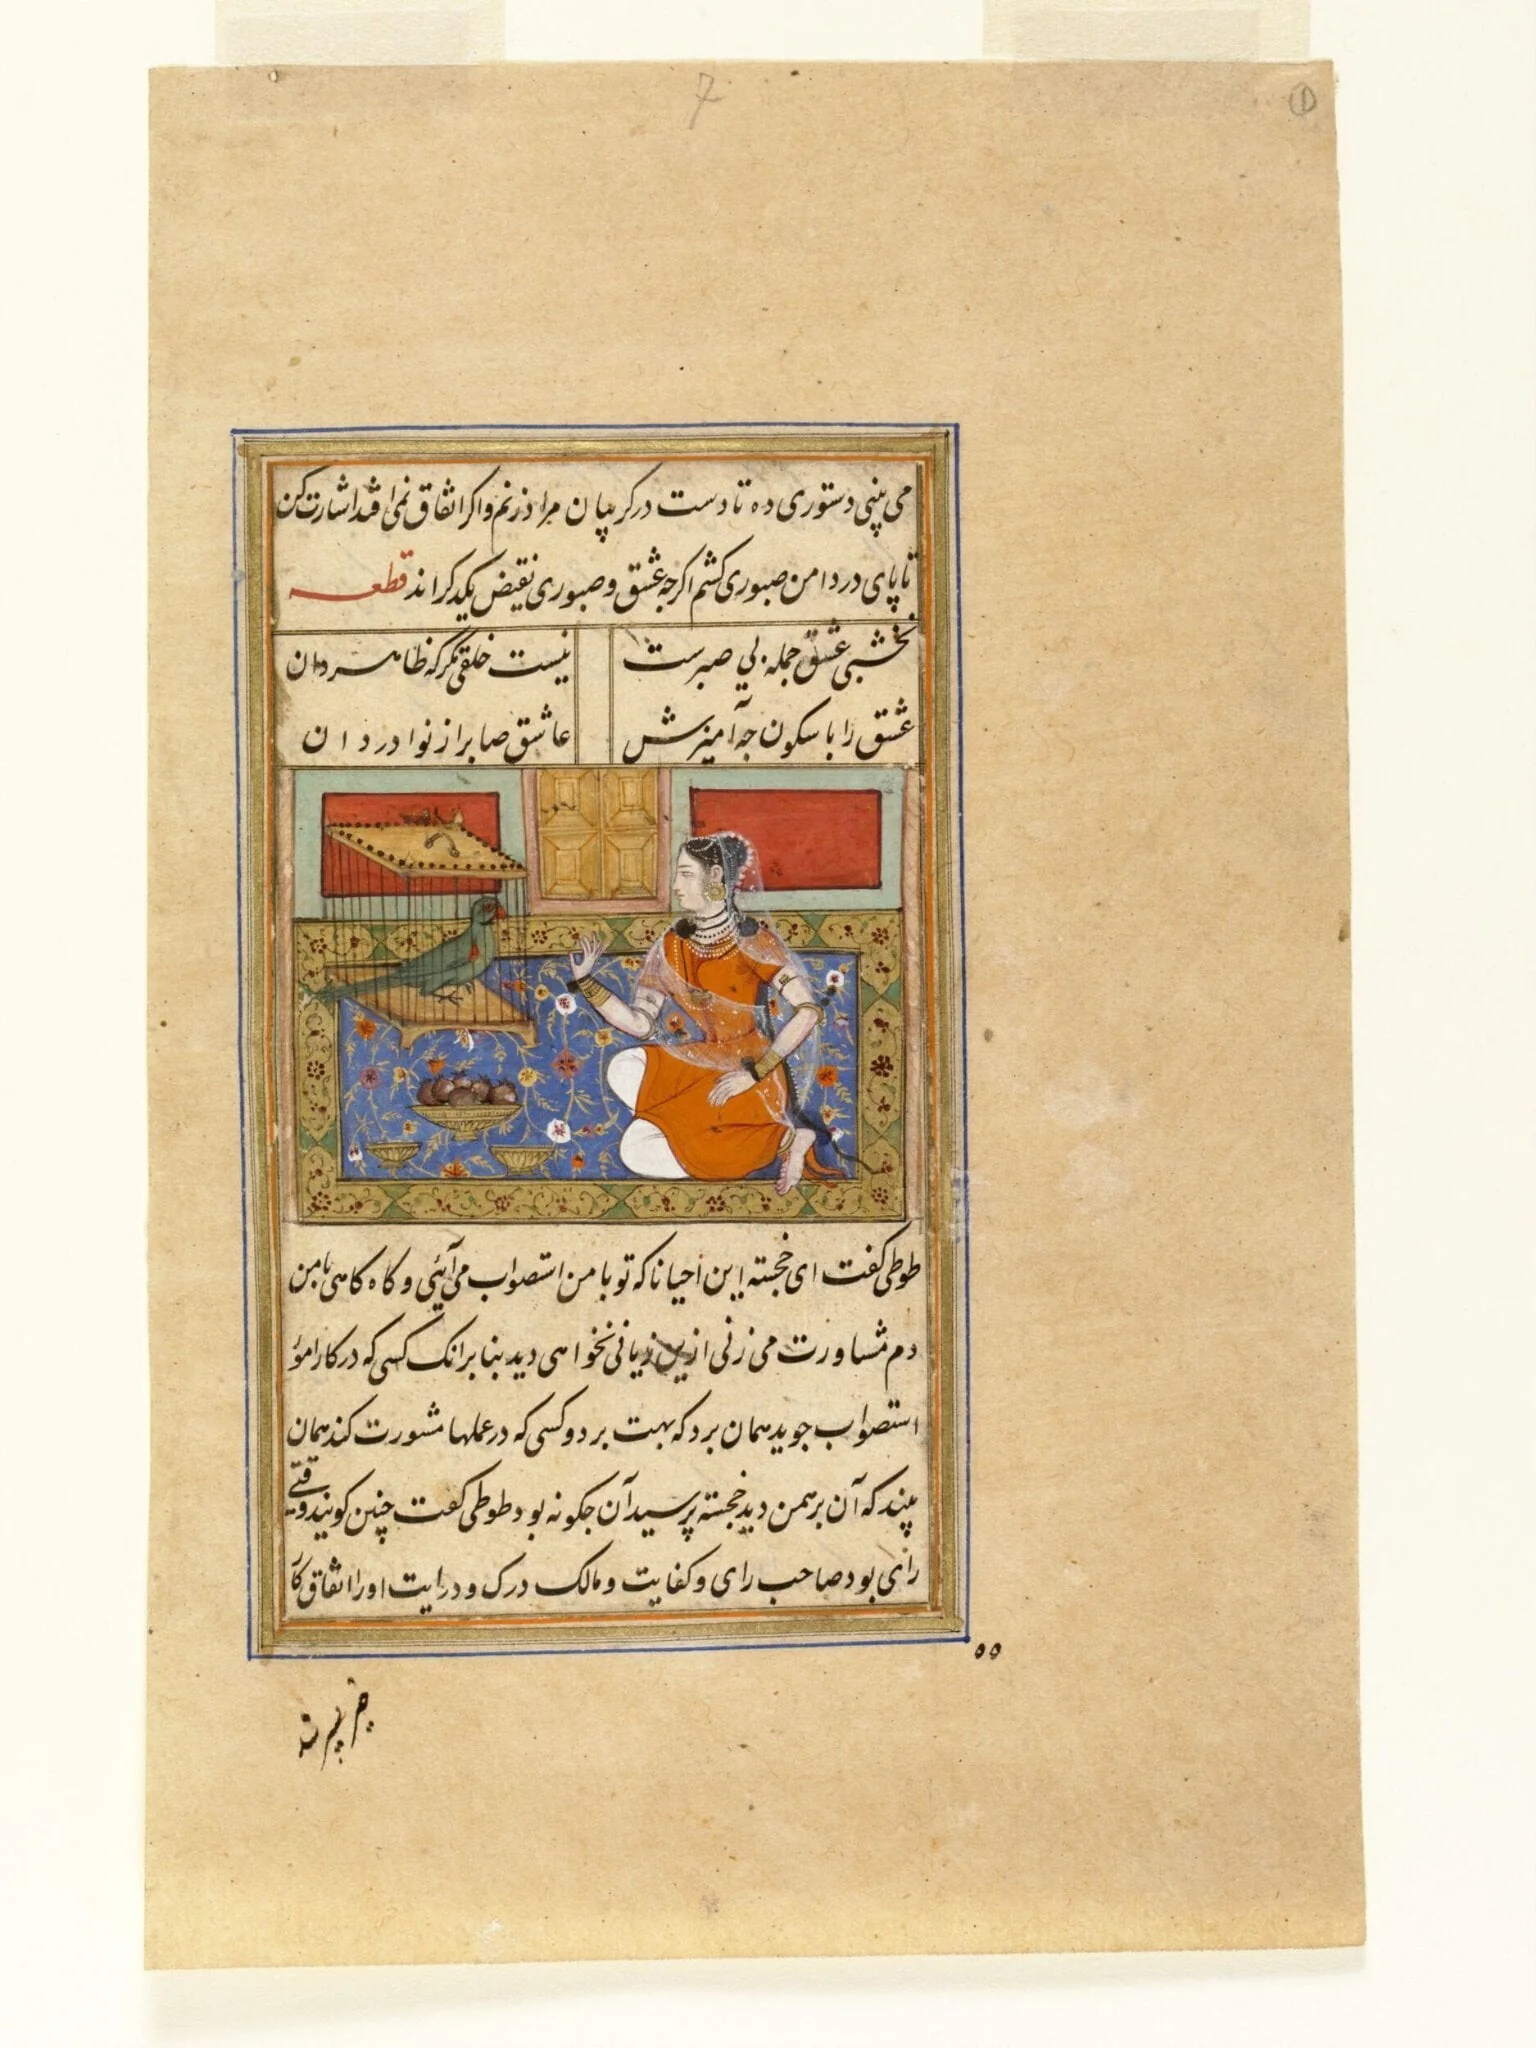 7
1
می بینی دستوری ده تا دست در کریبان مراد زنم و اکر اتفاق نمی افتد اشارت کن
تا پای در دامن صبوری کشم اکرجه عشق و صبوری نقیض یکدکراند قطعه
نخشبی عشق جمله بی صبرست نیست خلقی مکر که ظاهر دان
عشق را با سکون جه آمیزش عاشق صابر از نوادر دان
طوطی کفت ای خجسته این احیانا که تو با من استصواب می آئی و کاه کاهی با من
دم مشاورت می زنی ازین زیانی نخواهی دید بنا برانک کسی که در کارها
استصواب جوید همان برد که بهت برد و کسی که در عملها مشورت کند همان
بیند که آن برهمن دید خجسته پرسید آن جکونه بود طوطی کفت چنین کویند وقتی
رای بود صاحب رای و کفایت و مالک درک و درایت او را اتفاق
۵۵